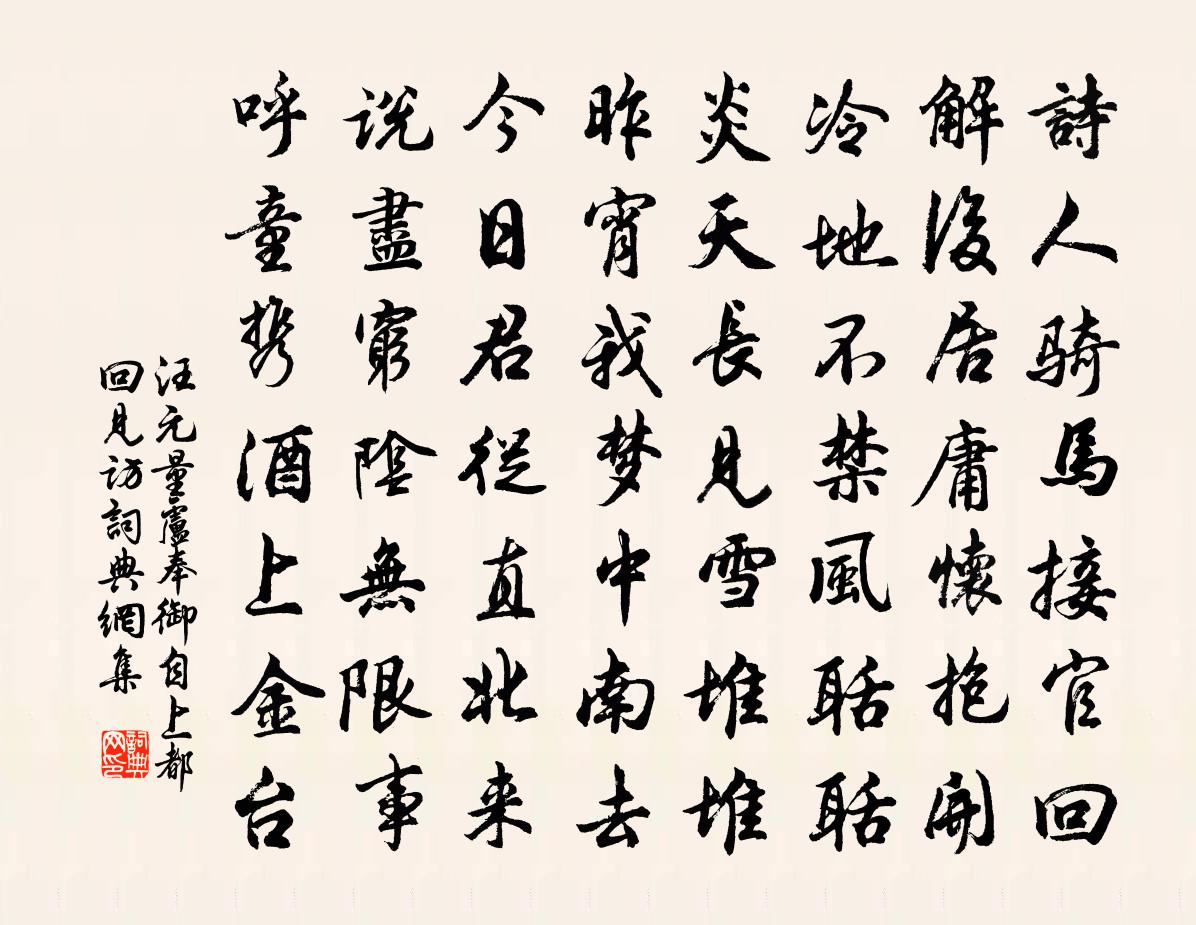 詩人骑馬接官回
解後居庸懷抱開
冷地不禁風聒聒
炎天長見雪堆堆
昨宵我梦中南去
今日君從直北来
说盡窮陰無限事
呼童携酒上金台
汪元量盧奉御自上都
回見访詞典網集
詞典
网印